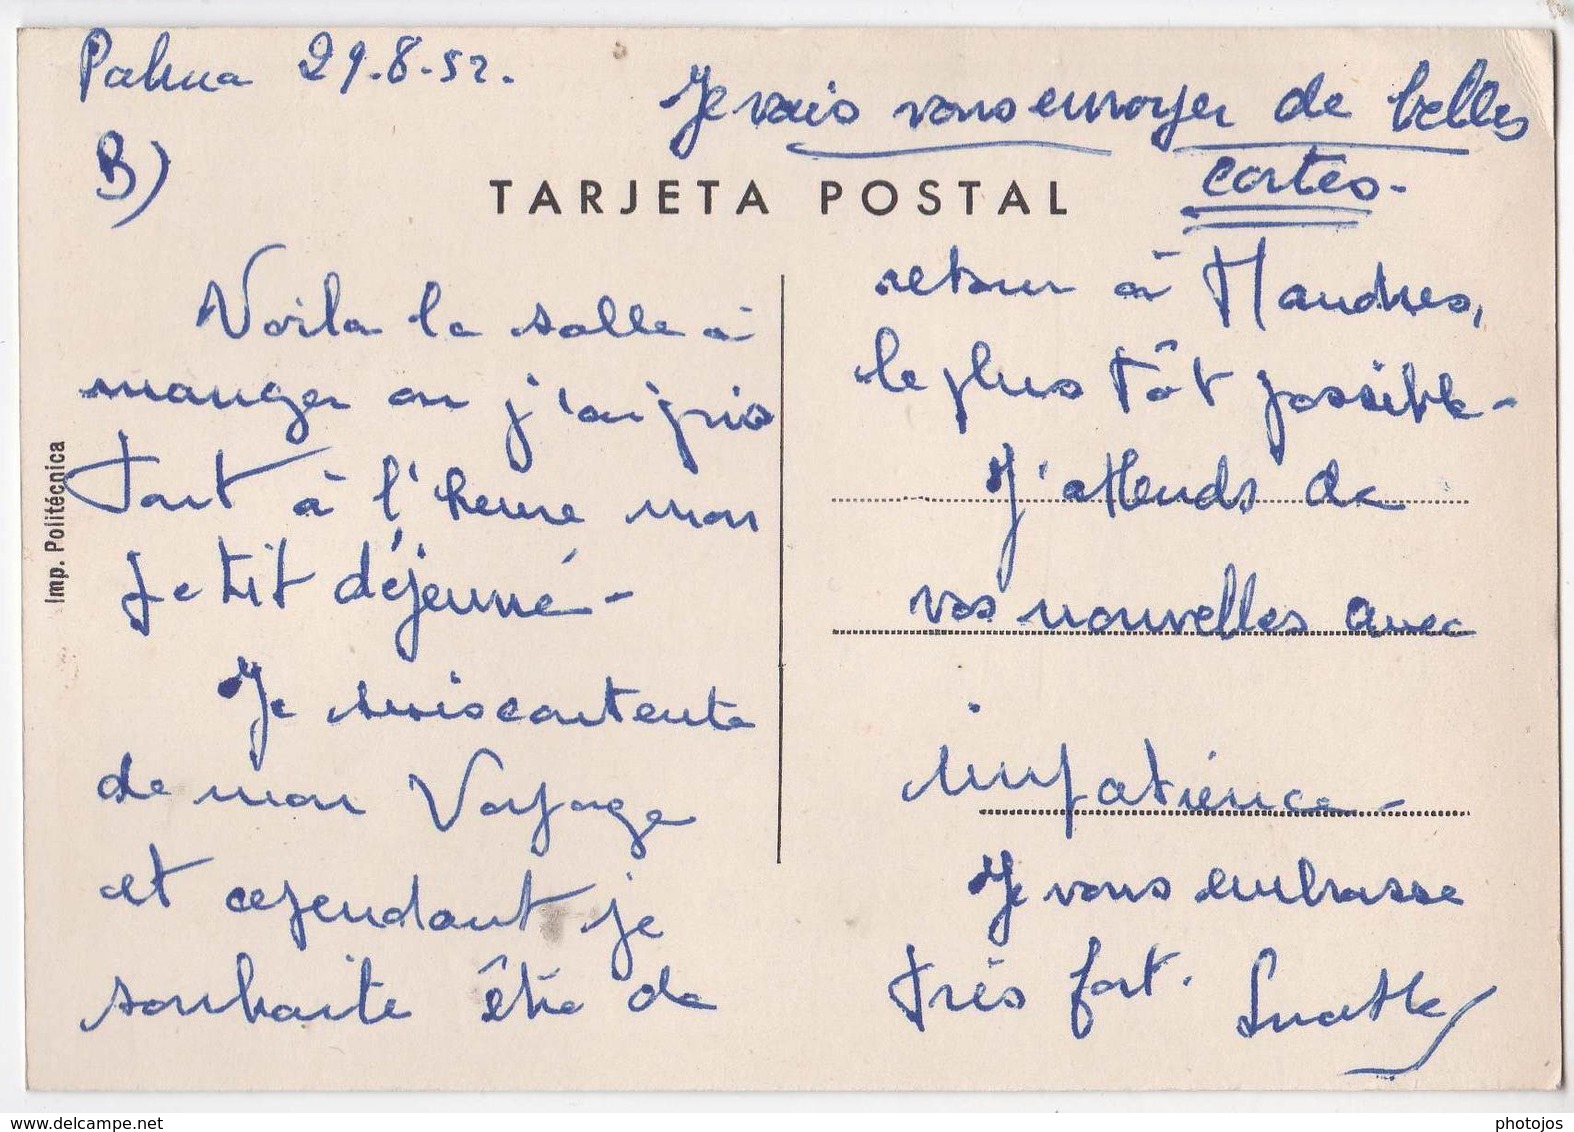 Palma 29.8.52.
Je vais vous envoyer de belles
cartes.
B)
TARJETA POSTAL
Voila la salle à
manger ou j'ai pris
tout à l'heure mon
petit déjeuné -
Je suis contente
de mon Voyage
et cependant je
souhaite être de
retour à Mandres,
le plus tôt possible -
J'attends de
vos nouvelles avec
impatience -
Je vous embrasse
très fort.
Imp. Politécnica
www.delcampe.net
photojos